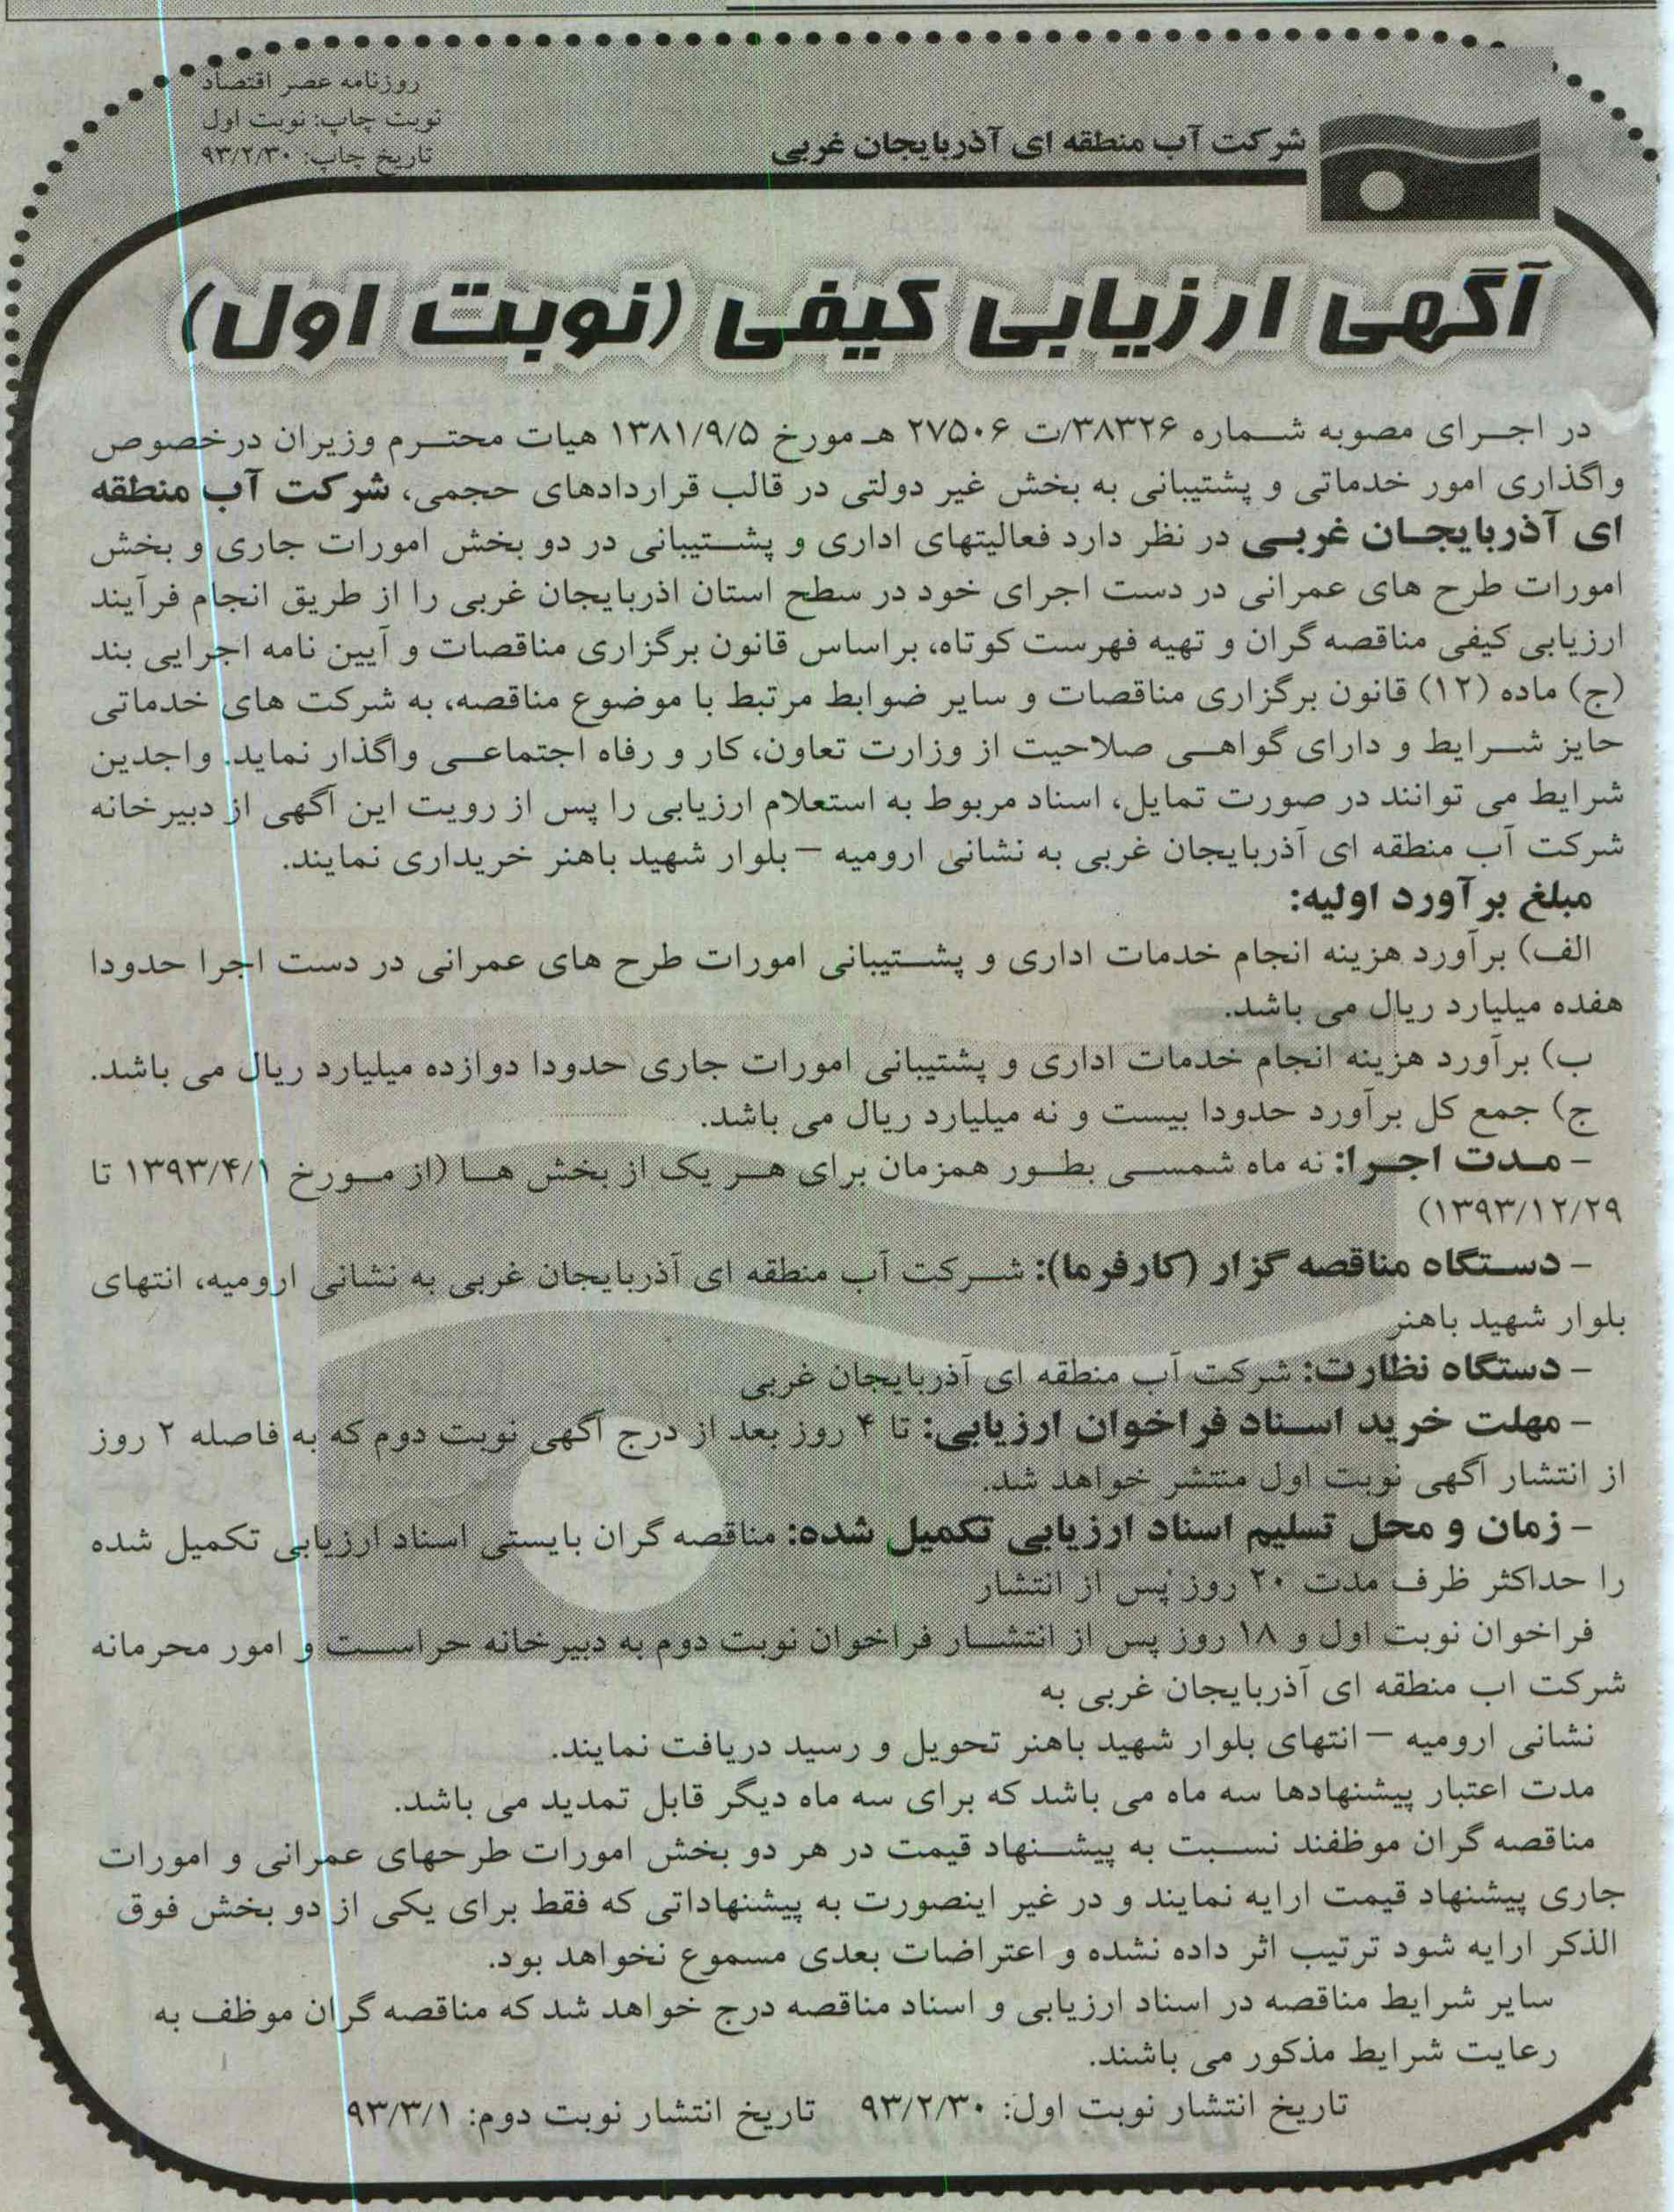 روزنامه عصر اقتصاد
نوبت چاپ: نوبت اول
تاریخ چاپ: ۹۳/۲/۳۰
شرکت آب منطقه ای آذربایجان غربی
آگهی ارزیابی کیفی (نوبت اول)
در اجرای مصوبه شماره ۳۸۳۲۶/ت ۲۷۵۰۶ هـ مورخ ۱۳۸۱/۹/۵ هیات محترم وزیران درخصوص
واگذاری امور خدماتی و پشتیبانی به بخش غیر دولتی در قالب قراردادهای حجمی، شرکت آب منطقه
ای آذربایجان غربی در نظر دارد فعالیتهای اداری و پشتیبانی در دو بخش امورات جاری و بخش
امورات طرح های عمرانی در دست اجرای خود در سطح استان اذربایجان غربی را از طریق انجام فرآیند
ارزیابی کیفی مناقصه گران و تهیه فهرست کوتاه، براساس قانون برگزاری مناقصات و آیین نامه اجرایی بند
(ج) ماده (۱۲) قانون برگزاری مناقصات و سایر ضوابط مرتبط با موضوع مناقصه، به شرکت های خدماتی
حایز شرایط و دارای گواهی صلاحیت از وزارت تعاون، کار و رفاه اجتماعی واگذار نماید. واجدین
شرایط می توانند در صورت تمایل، اسناد مربوط به استعلام ارزیابی را پس از رویت این آگهی از دبیرخانه
شرکت آب منطقه ای آذربایجان غربی به نشانی ارومیه – بلوار شهید باهنر خریداری نمایند.
مبلغ برآورد اولیه:
الف) برآورد هزینه انجام خدمات اداری و پشتیبانی امورات طرح های عمرانی در دست اجرا حدودا
هفده میلیارد ریال می باشد.
ب) برآورد هزینه انجام خدمات اداری و پشتیبانی امورات جاری حدودا دوازده میلیارد ریال می باشد.
ج) جمع کل برآورد حدودا بیست و نه میلیارد ریال می باشد.
- مدت اجرا: نه ماه شمسی بطور همزمان برای هر یک از بخش ها (از مورخ ۱۳۹۳/۴/۱ تا
۱۳۹۳/۱۲/۲۹)
- دستگاه مناقصه گزار (کارفرما): شرکت آب منطقه ای آذربایجان غربی به نشانی ارومیه، انتهای
بلوار شهید باهنر
- دستگاه نظارت: شرکت آب منطقه ای آذربایجان غربی
- مهلت خرید اسناد فراخوان ارزیابی: تا ۴ روز بعد از درج آگهی نوبت دوم که به فاصله ۲ روز
از انتشار آگهی نوبت اول منتشر خواهد شد.
- زمان و محل تسلیم اسناد ارزیابی تکمیل شده: مناقصه گران بایستی اسناد ارزیابی تکمیل شده
را حداکثر ظرف مدت ۲۰ روز پس از انتشار
فراخوان نوبت اول و ۱۸ روز پس از انتشار فراخوان نوبت دوم به دبیرخانه حراست و امور محرمانه
شرکت اب منطقه ای آذربایجان غربی به
نشانی ارومیه – انتهای بلوار شهید باهنر تحویل و رسید دریافت نمایند.
مدت اعتبار پیشنهادها سه ماه می باشد که برای سه ماه دیگر قابل تمدید می باشد.
مناقصه گران موظفند نسبت به پیشنهاد قیمت در هر دو بخش امورات طرحهای عمرانی و امورات
جاری پیشنهاد قیمت ارایه نمایند و در غیر اینصورت به پیشنهاداتی که فقط برای یکی از دو بخش فوق
الذکر ارایه شود ترتیب اثر داده نشده و اعتراضات بعدی مسموع نخواهد بود.
سایر شرایط مناقصه در اسناد ارزیابی و اسناد مناقصه درج خواهد شد که مناقصه گران موظف به
رعایت شرایط مذکور می باشند.
تاریخ انتشار نوبت اول: ۹۳/۲/۳۰ تاریخ انتشار نوبت دوم: ۹۳/۳/۱